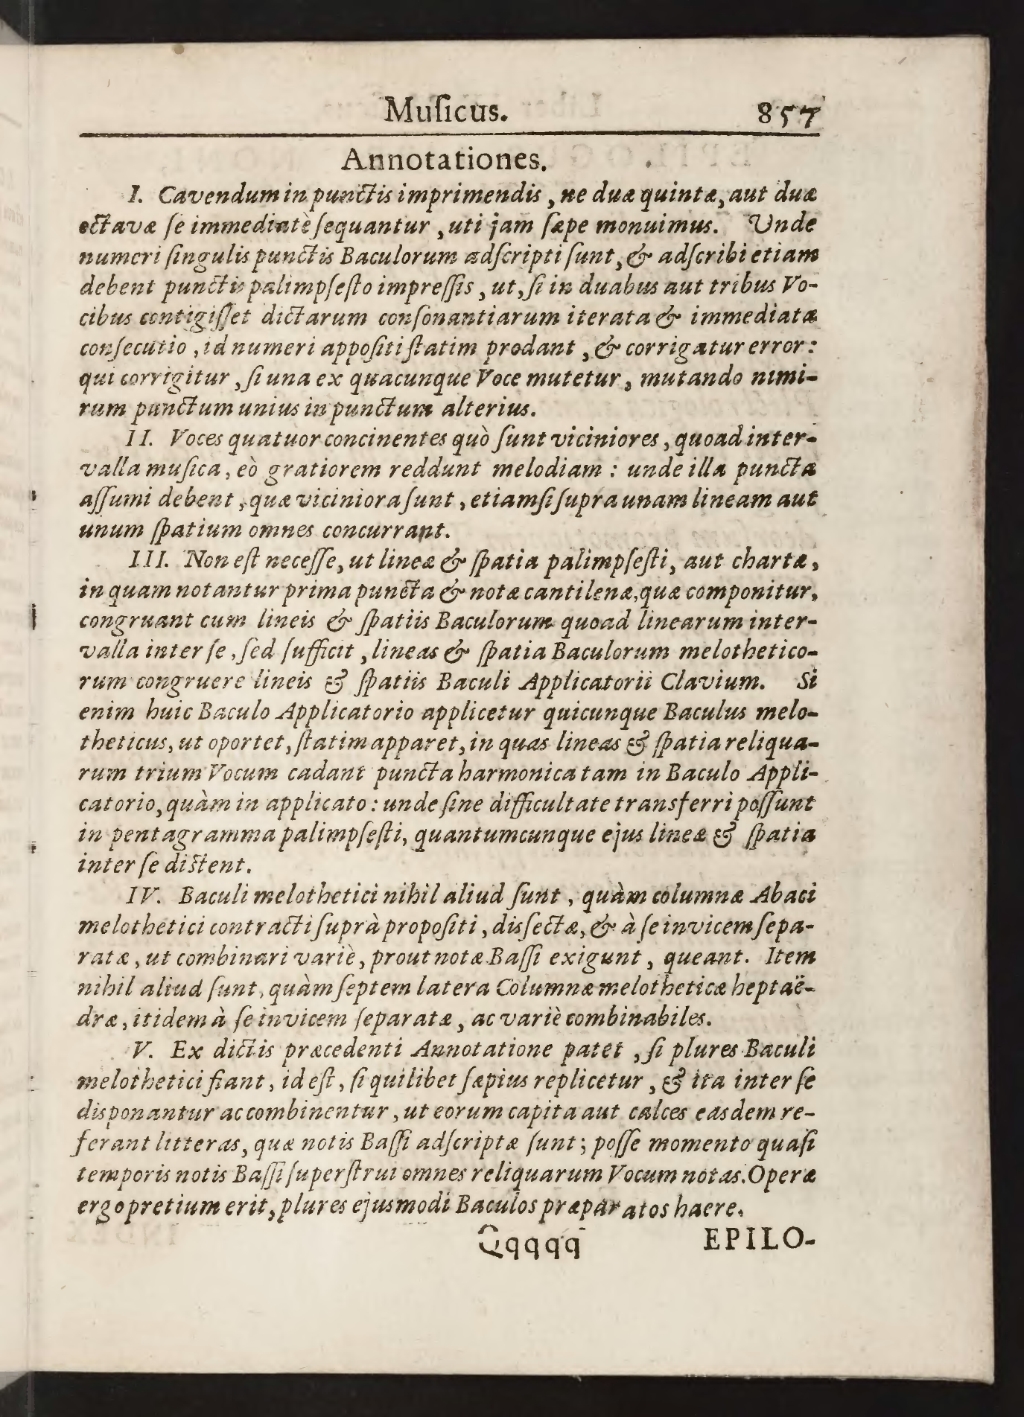 Muſicus. 857
Annotationes.
I. Cavendum in punctis imprimendis, ne duæ quintæ, aut duæ
octavæ ſe immediatè ſequantur, uti jam ſæpe monuimus. Unde
numeri ſingulis punctis Baculorum adſcripti ſunt, & adſcribi etiam
debent punctis palimpſeſto impreſſis, ut, ſi in duabus aut tribus Vo-
cibus contigiſſet dictarum conſonantiarum iterata & immediata
conſecutio, id numeri appoſiti ſtatim prodant, & corrigatur error:
qui corrigitur, ſi una ex quacunque Voce mutetur, mutando nimi-
rum punctum unius in punctum alterius.
II. Voces quatuor concinentes quò ſunt viciniores, quoad inter-
valla muſica, eò gratiorem reddunt melodiam: unde illa puncta
aſſumi debent, quæ viciniora ſunt, etiamſi ſupra unam lineam aut
unum ſpatium omnes concurrant.
III. Non eſt neceſſe, ut lineæ & ſpatia palimpſeſti, aut chartæ,
in quam notantur prima puncta & notæ cantilenæ, quæ componitur,
congruant cum lineis & ſpatiis Baculorum quoad linearum inter-
valla inter ſe, ſed ſufficit, lineas & ſpatia Baculorum melothetico-
rum congruere lineis & ſpatiis Baculi Applicatorii Clavium. Si
enim huic Baculo Applicatorio applicetur quicunque Baculus melo-
theticus, ut oportet, ſtatim apparet, in quas lineas & ſpatia reliqua-
rum trium Vocum cadant puncta harmonica tam in Baculo Appli-
catorio, quàm in applicato: unde ſine difficultate transferri poſſunt
in pentagramma palimpſeſti, quantumcunque ejus lineæ & ſpatia
inter ſe diſtent.
IV. Baculi melothetici nihil aliud ſunt, quàm columnæ Abaci
melothetici contracti ſuprà propoſiti, disſectæ, & à ſe invicem ſepa-
ratæ, ut combinari variè, prout notæ Baſſi exigunt, queant. Item
nihil aliud ſunt, quàm ſeptem latera Columnæ melotheticæ heptaë-
dræ, itidem à ſe invicem ſeparatæ, ac variè combinabiles.
V. Ex dictis præcedenti Annotatione patet, ſi plures Baculi
melothetici fiant, id eſt, ſi quilibet ſæpius replicetur, & ita inter ſe
disponantur ac combinentur, ut eorum capita aut calces easdem re-
ferant litteras, quæ notis Baſſi adſcriptæ ſunt; poſſe momento quaſi
temporis notis Baſſi ſuperſtrui omnes reliquarum Vocum notas. Operæ
ergo pretium erit, plures ejusmodi Baculos præparatos haere.
Qqqqq EPILO-